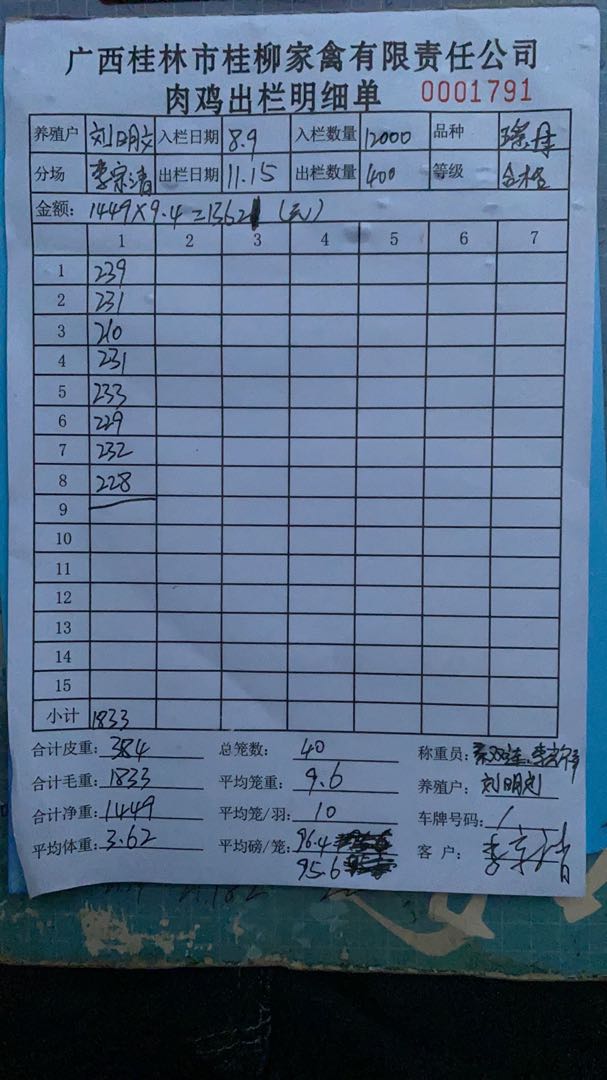 广西桂林市桂柳家禽有限责任公司
肉鸡出栏明细单 0001791
养殖户 刘明文 入栏日期 8.9 入栏数量 12000 品种
分场 李宗清 出栏日期 11.15 出栏数量 400 等级 合格
金额: 1449×9.4=13621 (元)
1 2 3 4 5 6 7
1 239
2 231
3 210
4 231
5 233
6 229
7 232
8 228
9
10
11
12
13
14
15
小计 1833
合计皮重: 384 总笼数: 40 称重员:
合计毛重: 1833 平均笼重: 9.6 养殖户: 刘明刘
合计净重: 1449 平均笼/羽: 10 车牌号码: /
平均体重: 3.62 平均磅/笼: 96.4 客户: 李宗清
95.6